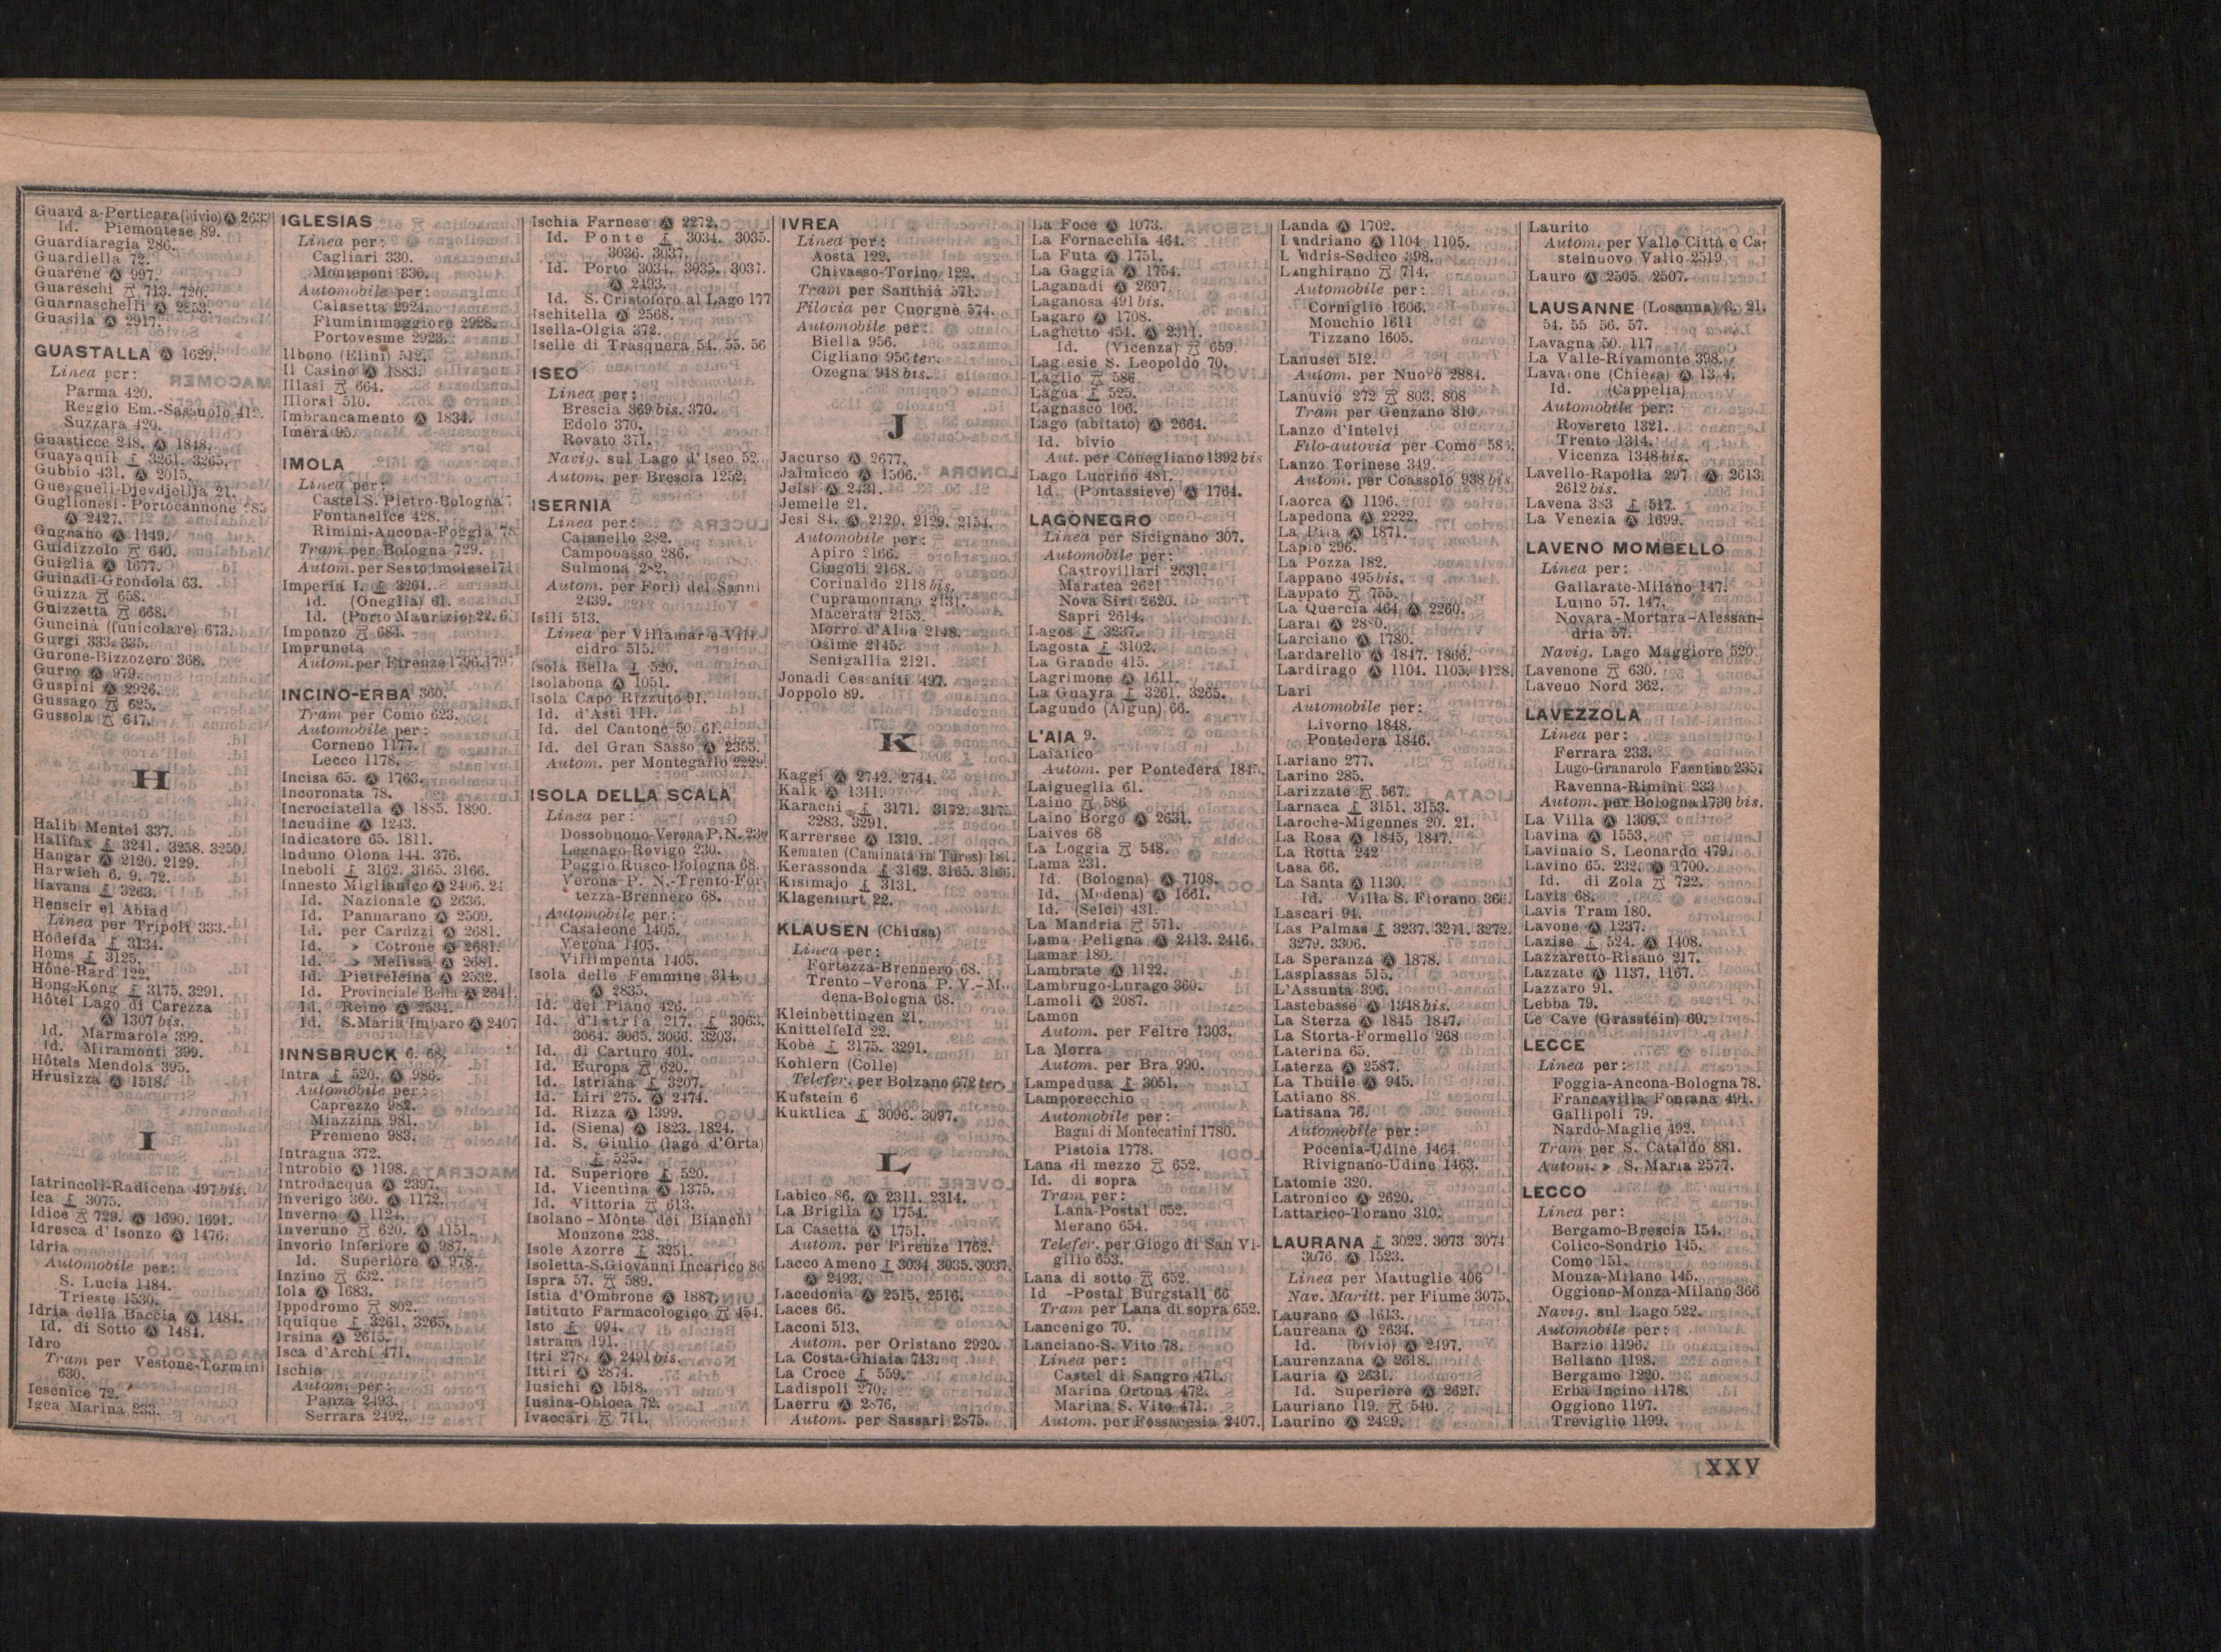 Guard a-Perticara(bivio) Ⓐ 2633
Id. Piemontese 89.
Guardiaregia 286.
Guardiella 72.
Guarene Ⓐ 997.
Guareschi 713. 720.
Guarnaschelli Ⓐ 2253.
Guasila Ⓐ 2917.
GUASTALLA Ⓐ 1629.
Linea per:
Parma 420.
Reggio Em.-Sassuolo 412.
Suzzara 420.
Guasticce 248. Ⓐ 1848.
Guayaquil 3261. 3265.
Gubbio 431. Ⓐ 2015.
Guevgueli-Djevdjelija 21.
Guglionesi-Portocannone 285
Ⓐ 2427.
Gugnano Ⓐ 1149.
Guidizzolo 640.
Guiglia Ⓐ 1677.
Guinadi-Grondola 63.
Guizza 658.
Guizzetta 668.
Guncinà (funicolare) 673.
Gurgi 333. 335.
Gurone-Bizzozero 368.
Gurro Ⓐ 979.
Guspini Ⓐ 2926.
Gussago 625.
Gussola 647.
H
Halib Mentel 337.
Halifax 3241. 3258. 3259.
Hangar Ⓐ 2120. 2129.
Harwich 6. 9. 72.
Havana 3263.
Henscir el Abiad
Linea per Tripoli 333.
Hodeida 3134.
Homs 3125.
Hône-Bard 122.
Hong-Kong 3175. 3291.
Hôtel Lago di Carezza
Ⓐ 1307 bis.
Id. Marmarole 399.
Id. Miramonti 399.
Hôtels Mendola 395.
Hrusizza Ⓐ 1518.
I
Iatrincoli-Radicena 497 bis.
Ica 3075.
Idice 729. Ⓐ 1690. 1691.
Idresca d'Isonzo Ⓐ 1476.
Idria
Automobile per:
S. Lucia 1484.
Trieste 1530.
Idria della Baccia Ⓐ 1484.
Id. di Sotto Ⓐ 1484.
Idro
Tram per Vestone-Tormini
630.
Iesenice 72.
Igea Marina 233.
IGLESIAS
Linea per:
Cagliari 330.
Monteponi 330.
Automobile per:
Calasetta 2924.
Fluminimaggiore 2928.
Portovesme 2923.
Ilbono (Elini) 512.
Il Casino Ⓐ 1883.
Illasi 664.
Illorai 510.
Imbrancamento Ⓐ 1834.
Imera 95.
IMOLA
Linea per:
Castel S. Pietro-Bologna
Fontanelice 428.
Rimini-Ancona-Foggia 78.
Tram per Bologna 729.
Autom. per Sesto Imolese
Imperia I. 3204.
Id. (Oneglia) 61.
Id. (Porto Maurizio) 22. 6
Imponzo 684.
Impruneta
Autom. per Firenze 1796. 179
INCINO-ERBA 360.
Tram per Como 623.
Automobile per:
Corneno 1177.
Lecco 1178.
Incisa 65. Ⓐ 1763.
Incoronata 78.
Incrociatella Ⓐ 1885. 1890.
Incudine Ⓐ 1243.
Indicatore 65. 1811.
Induno Olona 144. 376.
Ineboli 3162. 3165. 3166.
Innesto Miglianico Ⓐ 2406. 24
Id. Nazionale Ⓐ 2636.
Id. Pannarano Ⓐ 2509.
Id. per Carizzi Ⓐ 2681.
Id. » Cotrone Ⓐ 2681.
Id. » Melissa Ⓐ 2681.
Id. Pietrelcina Ⓐ 2532.
Id. Provinciale Bella Ⓐ 2641.
Id. Reino Ⓐ 2534.
Id. S. Maria Imbaro Ⓐ 2407
INNSBRUCK 6. 68.
Intra 520. Ⓐ 986.
Automobile per:
Caprezzo 982.
Miazzina 981.
Premeno 983.
Intragna 372.
Introbio Ⓐ 1198.
Introdacqua Ⓐ 2397.
Inverigo 360. Ⓐ 1172.
Inverno Ⓐ 1124.
Inveruno 620. Ⓐ 1151.
Invorio Inferiore Ⓐ 987.
Id. Superiore Ⓐ 978.
Inzino 632.
Iola Ⓐ 1683.
Ippodromo 802.
Iquique 3261. 3265.
Irsina Ⓐ 2615.
Isca d'Archi 471.
Ischia
Autom. per:
Panza 2493.
Serrara 2492.
Ischia Farnese Ⓐ 2272.
Id. Ponte 3034. 3035.
3036. 3037.
Id. Porto 3034. 3035. 3037.
Ⓐ 2493.
Id. S. Cristoforo al Lago 177
Ischitella Ⓐ 2568.
Isella-Olgia 372.
Iselle di Trasquera 54. 55. 56
ISEO
Linea per:
Brescia 369 bis. 370.
Edolo 370.
Rovato 371.
Navig. sul Lago d'Iseo 52
Autom. per Brescia 1252.
ISERNIA
Linea per:
Caianello 282.
Campobasso 286.
Sulmona 282.
Autom. per Forlì del Sanni
2439.
Isili 513.
Linea per Villamar e Vill
cidro 515.
Isola Bella 520.
Isolabona Ⓐ 1051.
Isola Capo Rizzuto 91.
Id. d'Asti 111.
Id. del Cantone 50. 61.
Id. del Gran Sasso Ⓐ 2355.
Autom. per Montegallo 2229.
ISOLA DELLA SCALA
Linea per:
Dossobuono-Verona P.N. 230
Legnago-Rovigo 230.
Poggio Rusco-Bologna 68.
Verona P. N.-Trento-For
tezza-Brennero 68.
Automobile per:
Casaleone 1405.
Verona 1405.
Villimpenta 1405.
Isola delle Femmine 314.
Ⓐ 2835.
Id. del Piano 426.
Id. d'Istria 217. 3063.
3064. 3065. 3066. 3203.
Id. di Carturo 401.
Id. Europa 620.
Id. Istriana 3207.
Id. Liri 275. Ⓐ 2474.
Id. Rizza Ⓐ 1399.
Id. (Siena) Ⓐ 1823. 1824.
Id. S. Giulio (lago d'Orta)
525.
Id. Superiore 520.
Id. Vicentina Ⓐ 1375.
Id. Vittoria 613.
Isolano-Monte dei Bianchi
Monzone 238.
Isole Azorre 3251.
Isoletta-S. Giovanni Incarico 86
Ispra 57. 589.
Istia d'Ombrone Ⓐ 1887.
Istituto Farmacologico 454.
Isto 694.
Istrana 191.
Itri 278. Ⓐ 2491 bis.
Ittiri Ⓐ 2874.
Iusichi Ⓐ 1518.
Iusina-Obloca 72.
Ivaccari 711.
IVREA
Linea per:
Aosta 122.
Chivasso-Torino 122.
Tram per Santhià 571.
Filovia per Cuorgnè 574.
Automobile per:
Biella 956.
Cigliano 956 ter.
Ozegna 948 bis.
J
Jacurso Ⓐ 2677.
Jalmicco Ⓐ 1506.
Jelsi Ⓐ 2431.
Jemelle 21.
Jesi 84. Ⓐ 2120. 2129. 2154.
Automobile per:
Apiro 2166.
Cingoli 2168.
Corinaldo 2118 bis.
Cupramontana 2131.
Macerata 2153.
Morro d'Alba 2148.
Osimo 2145.
Senigallia 2121.
Jonadi Cessaniti 497.
Joppolo 89.
K
Kaggi Ⓐ 2742. 2744.
Kalk Ⓐ 1311.
Karachi 3171. 3172. 3175
3283. 3291.
Karrersee Ⓐ 1319.
Kematen (Caminata in Tures) 181.
Kerassonda 3162. 3165. 3166.
Kisimajo 3131.
Klagenfurt 22.
KLAUSEN (Chiusa)
Linea per:
Fortezza-Brennero 68.
Trento-Verona P. V.-M
dena-Bologna 68.
Kleinbettingen 21.
Knittelfeld 22.
Kobè 3175. 3291.
Kohlern (Colle)
Telefer. per Bolzano 672 ter.
Kufstein 6
Kuktlica 3096. 3097.
L
Labico 86. Ⓐ 2311. 2314.
La Briglia Ⓐ 1754.
La Casetta Ⓐ 1751.
Autom. per Firenze 1762.
Lacco Ameno 3034. 3035. 3037.
Ⓐ 2493.
Lacedonia Ⓐ 2515. 2516.
Laces 66.
Laconi 513.
Autom. per Oristano 2920.
La Costa-Ghiaia 713.
La Croce 559.
Ladispoli 270.
Laerru Ⓐ 2876.
Autom. per Sassari 2875.
La Foce Ⓐ 1073.
La Fornacchia 464.
La Futa Ⓐ 1751.
La Gaggia Ⓐ 1754.
Laganadi Ⓐ 2697.
Laganosa 491 bis.
Lagaro Ⓐ 1708.
Laghetto 454. Ⓐ 2311.
Id. (Vicenza) 659
Lag esie S. Leopoldo 70.
Laglio 586
Lagna 525.
Lagnasco 106.
Lago (abitato) Ⓐ 2664.
Id. bivio
Aut. per Conegliano 1392 bis
Lago Lucrino 481.
Id. (Pontassieve) Ⓐ 1764.
LAGONEGRO
Linea per Sicignano 307.
Automobile per:
Castrovillari 2631.
Maratea 2621
Nova Siri 2620.
Sapri 2614.
Lagos 3237.
Lagosta 3102.
La Grande 415.
Lagrimone Ⓐ 1611.
La Guayra 3261. 3265.
Lagundo (Algun) 66.
L'AIA 9.
Laiatico
Autom. per Pontedera 1845.
Laigueglia 61.
Laino 586
Laino Borgo Ⓐ 2631.
Laives 68
La Loggia 548.
Lama 231.
Id. (Bologna) Ⓐ 7108.
Id. (Modena) Ⓐ 1661.
Id. (Selci) 431.
La Mandria 571.
Lama Peligna Ⓐ 2413. 2416.
Lamar 180.
Lambrate Ⓐ 1122.
Lambrugo-Lurago 360.
Lamoli Ⓐ 2087.
Lamon
Autom. per Feltre 1303.
La Morra
Autom. per Bra 990.
Lampedusa 3051.
Lamporecchio
Automobile per:
Bagni di Montecatini 1780.
Pistoia 1778.
Lana di mezzo 652.
Id. di sopra
Tram per:
Lana-Postal 652.
Merano 654.
Telefer. per Giogo di San Vi-
gilio 653.
Lana di sotto 652.
Id -Postal Burgstall 66
Tram per Lana di sopra 652.
Lancenigo 70.
Lanciano-S. Vito 78.
Linea per:
Castel di Sangro 471.
Marina Ortona 472.
Marina S. Vito 471.
Autom. per Fossacesia 2407.
Landa Ⓐ 1702.
L ndriano Ⓐ 1104. 1105.
L ndris-Sedico 398.
Langhirano 714.
Automobile per:
Corniglio 1606.
Monchio 1611
Tizzano 1605.
Lanusei 512.
Autom. per Nuoro 2884.
Lanuvio 272 803. 808
Tram per Genzano 810.
Lanzo d'Intelvi
Filo-autovia per Como 583.
Lanzo Torinese 349.
Autom. per Coassolo 938 bis
Laorca Ⓐ 1196.
Lapedona Ⓐ 2222.
La Pila Ⓐ 1871.
Lapio 296.
La Pozza 182.
Lappano 495 bis.
Lappato 755.
La Quercia 464 Ⓐ 2260.
Larai Ⓐ 2880.
Larciano Ⓐ 1780.
Lardarello Ⓐ 1847. 1866.
Lardirago Ⓐ 1104. 1105. 1128.
Lari
Automobile per:
Livorno 1848.
Pontedera 1846.
Lariano 277.
Larino 285.
Larizzate 567.
Larnaca 3151. 3153.
Laroche-Migennes 20. 21.
La Rosa Ⓐ 1845, 1847.
La Rotta 242
Lasa 66.
La Santa Ⓐ 1130.
Id. Villa S. Fiorano 366.
Lascari 94.
Las Palmas 3237. 3271. 3272.
3279. 3306.
La Speranza Ⓐ 1878.
Lasplassas 515.
L'Assunta 396.
Lastebasse Ⓐ 1348 bis.
La Sterza Ⓐ 1845 1847.
La Storta-Formello 268
Laterina 65.
Laterza Ⓐ 2587.
La Thuile Ⓐ 945.
Latiano 88.
Latisana 76.
Automobile per:
Pocenia-Udine 1464
Rivignano-Udine 1463.
Latomie 320.
Latronico Ⓐ 2620.
Lattarico-Torano 310.
LAURANA 3022. 3073 3074
3076. Ⓐ 1523.
Linea per Mattuglie 406
Nav. Maritt. per Fiume 3075.
Laurano Ⓐ 1613.
Laureana Ⓐ 2634.
Id. (bivio) Ⓐ 2497.
Laurenzana Ⓐ 2618.
Lauria Ⓐ 2631.
Id. Superiore Ⓐ 2621.
Lauriano 119. 540.
Laurino Ⓐ 2499.
Laurito
Autom. per Vallo Città e Ca-
stelnuovo Vallo 2519
Lauro Ⓐ 2505. 2507.
LAUSANNE (Losanna) 6. 21.
54. 55 56. 57.
Lavagna 50. 117
La Valle-Rivamonte 398.
Lavarone (Chiesa) Ⓐ 13 4.
Id. (Cappella)
Automobile per:
Rovereto 1321.
Trento 1314.
Vicenza 1348 bis.
Lavello-Rapolla 297 Ⓐ 2613.
2612 bis.
Lavena 383 517.
La Venezia Ⓐ 1699.
LAVENO MOMBELLO
Linea per:
Gallarate-Milano 147.
Luino 57. 147.
Novara-Mortara-Alessan-
dria 57.
Navig. Lago Maggiore 520
Lavenone 630.
Laveno Nord 362.
LAVEZZOLA
Linea per:
Ferrara 233.
Lugo-Granarolo Faentino 235.
Ravenna-Rimini 233
Autom. per Bologna 1730 bis.
La Villa Ⓐ 1309.
Lavina Ⓐ 1553.
Lavinaio S. Leonardo 479.
Lavino 65. 232. Ⓐ 1700.
Id. di Zola 722.
Lavis 68.
Lavis Tram 180.
Lavone Ⓐ 1237.
Lazise 524. Ⓐ 1408.
Lazzaretto-Risano 217.
Lazzate Ⓐ 1137. 1167.
Lazzaro 91.
Lebba 79.
Le Cave (Grasstein) 69.
LECCE
Linea per:
Foggia-Ancona-Bologna 78.
Francavilla Fontana 491.
Gallipoli 79.
Nardò-Maglie 492.
Tram per S. Cataldo 881.
Autom. » S. Maria 2577.
LECCO
Linea per:
Bergamo-Brescia 154.
Colico-Sondrio 145.
Como 151.
Monza-Milano 145.
Oggiono-Monza-Milano 366
Navig. sul Lago 522.
Automobile per:
Barzio 1196.
Bellano 1198.
Bergamo 1220.
Erba Incino 1178.
Oggiono 1197.
Treviglio 1199.
XXV